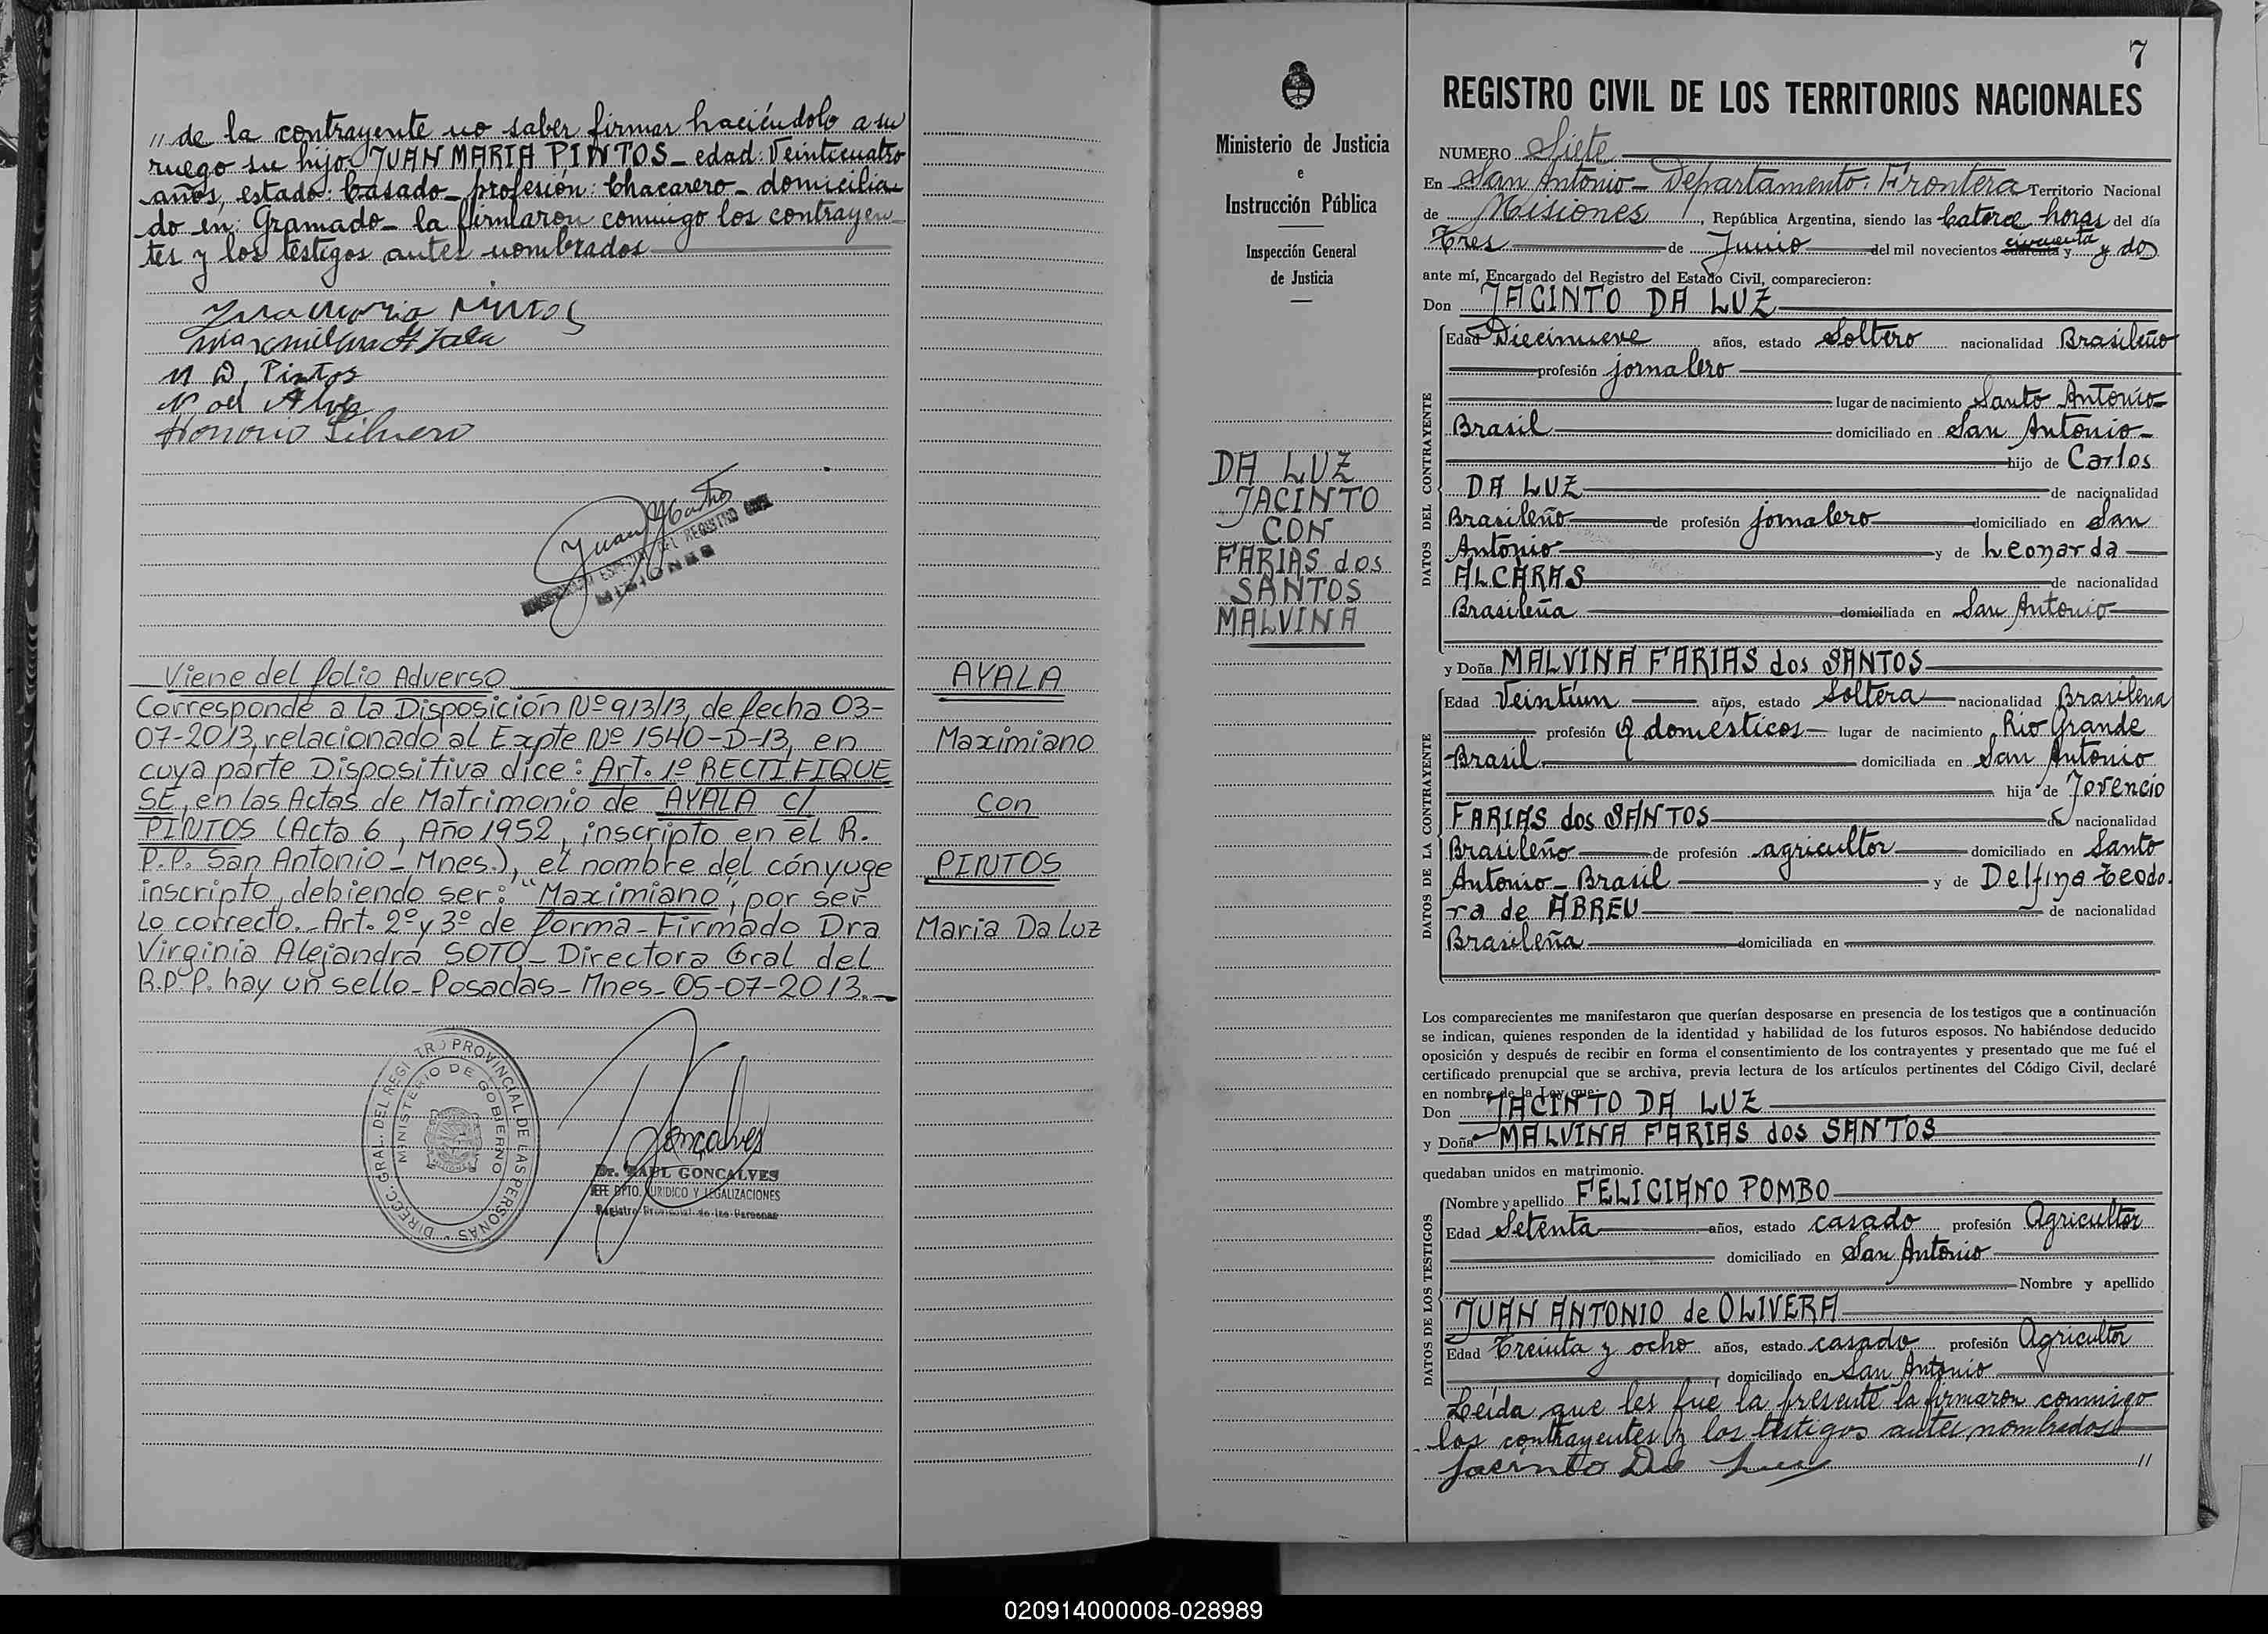 " de la contrayente no saber firmar haciéndolo a su
ruego su hijo JUAN MARIA PINTOS - edad: Veinticuatro
años, estado: Casado - profesión: Chacarero - domicilia
do en: Gramado - la firmaron conmigo los contrayen-
tes y los testigos antes nombrados
Juan Maria Pintos
M D Pintos
Honorio
Juan
MISIONES
Viene del folio Adverso
Corresponde a la Disposición Nº 913/13, de fecha 03-
07-2013, relacionado al Expte Nº 1540-D-13, en
cuya parte Dispositiva dice: Art. 1º RECTIFIQUE
SE, en las Actas de Matrimonio de AYALA C/
PINTOS (Acta 6, Año 1952, inscripto en el R.
P.P. San Antonio - Mnes.), el nombre del cónyuge
inscripto, debiendo ser: "Maximiano", por ser
lo correcto. - Art. 2º y 3º de forma - Firmado Dra
Virginia Alejandra SOTO - Directora Gral del
R.P.P. hay un sello - Posadas - Mnes - 05-07-2013. -
AYALA
Maximiano
Con
PINTOS
Maria Da Luz
DIRECC. GRAL. DEL REGISTRO PROVINCIAL DE LAS PERSONAS
MINISTERIO DE GOBIERNO
Goncalves
Dr. RAUL GONCALVES
JEFE DPTO. JURIDICO Y LEGALIZACIONES
Registro Provincial de las Personas
Ministerio de Justicia
e
Instrucción Pública
Inspección General
de Justicia
DA LUZ
JACINTO
CON
FARIAS dos
SANTOS
MALVINA
7
REGISTRO CIVIL DE LOS TERRITORIOS NACIONALES
NUMERO Siete
En San Antonio - Departamento: Frontera Territorio Nacional
de Misiones, República Argentina, siendo las Catorce horas del día
Tres de Junio del mil novecientos cuarenta y cincuenta y dos
ante mí, Encargado del Registro del Estado Civil, comparecieron:
Don JACINTO DA LUZ
DATOS DEL CONTRAYENTE
Edad Diecinueve años, estado Soltero nacionalidad Brasileño
profesión jornalero
lugar de nacimiento Santo Antonio-
Brasil domiciliado en San Antonio-
hijo de Carlos
DA LUZ de nacionalidad
Brasileño de profesión jornalero domiciliado en San
Antonio y de Leonarda
ALCARAS de nacionalidad
Brasileña domiciliada en San Antonio
y Doña MALVINA FARIAS dos SANTOS
DATOS DE LA CONTRAYENTE
Edad Veintiun años, estado Soltera nacionalidad Brasilena
profesión Q domesticos lugar de nacimiento Rio Grande
Brasil domiciliada en San Antonio
hija de Jovencio
FARIAS dos SANTOS de nacionalidad
Brasileño de profesión agricultor domiciliado en Santo
Antonio - Brasil y de Delfina Teodo-
ra de ABREU de nacionalidad
Brasileña domiciliada en
Los comparecientes me manifestaron que querían desposarse en presencia de los testigos que a continuación
se indican, quienes responden de la identidad y habilidad de los futuros esposos. No habiéndose deducido
oposición y después de recibir en forma el consentimiento de los contrayentes y presentado que me fué el
certificado prenupcial que se archiva, previa lectura de los artículos pertinentes del Código Civil, declaré
en nombre de la Ley que:
Don JACINTO DA LUZ
y Doña MALVINA FARIAS dos SANTOS
quedaban unidos en matrimonio.
DATOS DE LOS TESTIGOS
Nombre y apellido FELICIANO POMBO
Edad Setenta años, estado casado profesión Agricultor
domiciliado en San Antonio
Nombre y apellido
JUAN ANTONIO de OLIVERA
Edad Treinta y ocho años, estado casado profesión Agricultor
domiciliado en San Antonio
Leída que les fué la presente la firmaron conmigo
los contrayentes y los testigos antes nombrados
Jacinto Da Luz "
020914000008-028989